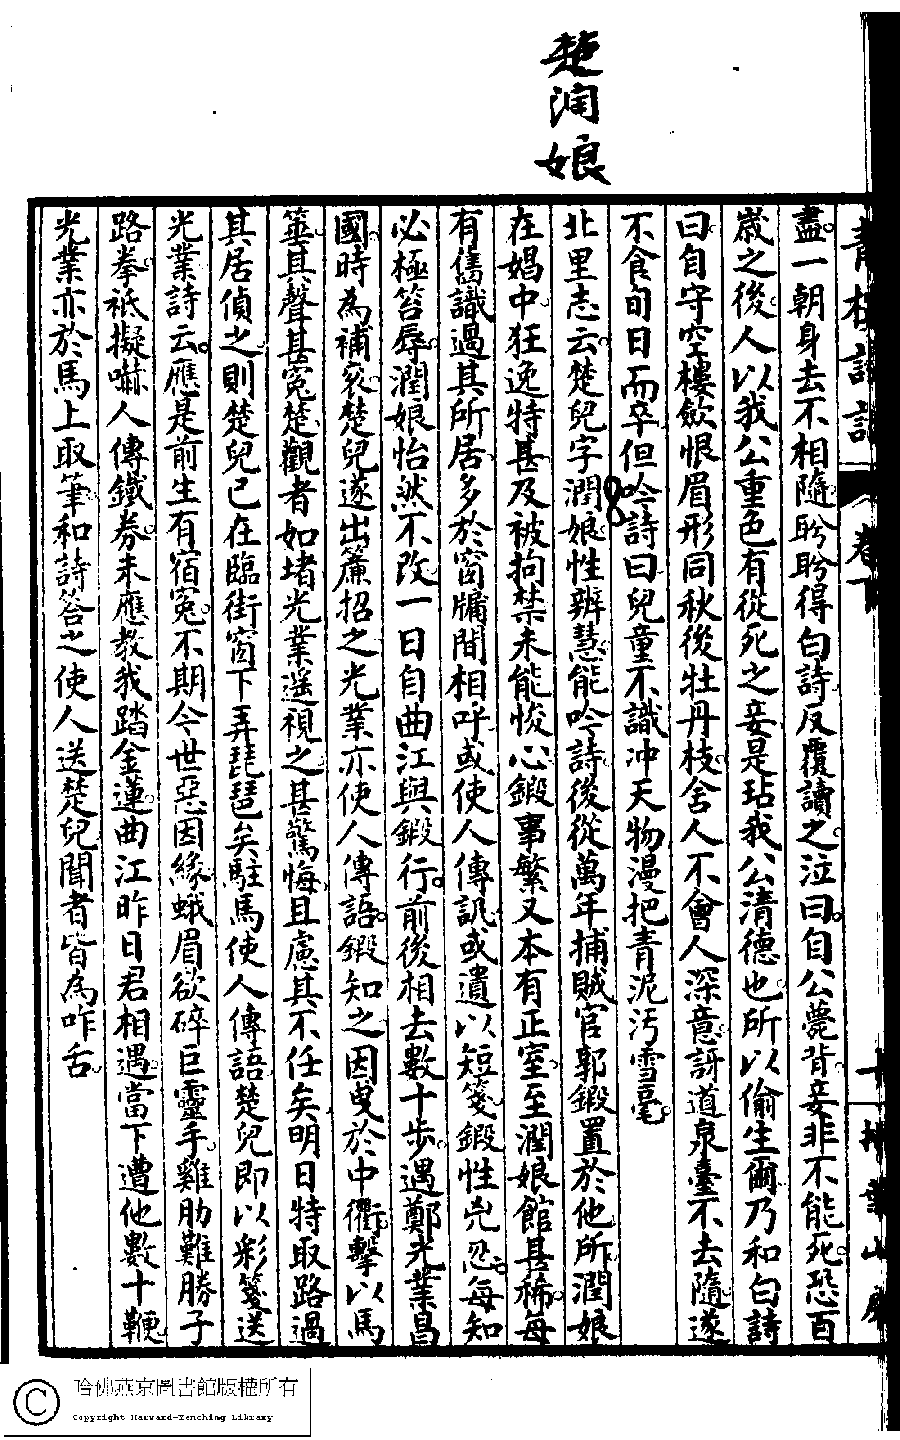 楚潤娘
盡一朝身去不相隨盻盻得白詩反覆讀之泣曰自公薨背妾非不能死恐百
歲之後人以我公重色有從死之妾是玷我公清德也所以偷生爾乃和白詩
曰自守空樓斂恨眉形同秋後牡丹枝舍人不會人深意訝道泉臺不去隨遂
不食旬日而卒但吟詩曰兒童不識冲天物漫把青泥汚雪毫
北里志云楚兒字潤娘性辨慧能吟詩後從萬年捕賊官郭鍛置於他所潤娘
在娼中狂逸特甚及被拘禁未能悛心鍛事繁又本有正室至潤娘館甚稀每
有舊識過其所居多於窗牖間相呼或使人傳訊或遺以短箋鍛性兇忍每知
必極笞辱潤娘怡然不改一日自曲江與鍛行前後相去數十步遇鄭光業昌
國時為補袞楚兒遂出簾招之光業亦使人傳語鍛知之因曳於中衢擊以馬
箠其聲甚冤楚觀者如堵光業遥視之甚驚悔且慮其不任矣明日特取路過
其居偵之則楚兒已在臨街窗下弄琵琶矣駐馬使人傳語楚兒即以彩箋送
光業詩云應是前生有宿冤不期今世惡因緣蛾眉欲碎巨靈手雞肋難勝子
路拳衹擬嚇人傳鐵券未應教我踏金蓮曲江昨日君相遇當下遭他數十鞭
光業亦於馬上取筆和詩答之使人送楚兒聞者皆為咋舌
哈佛燕京圖書館版權所有
Copyright Harvard-Yenching Library